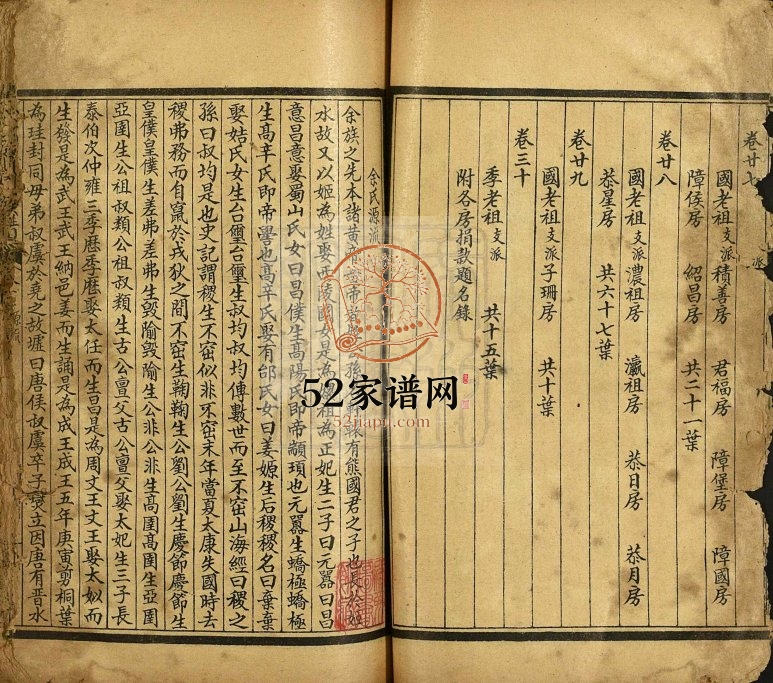 卷廿七
國老祖支派積善房 君福房 障堡房 障國房
障侯房 紹昌房 共二十一葉
卷廿八
國老祖支派濃祖房 瀛祖房 恭日房 恭月房
恭星房 共六十七葉
卷廿九
國老祖支派子珊房 共十葉
卷三十
季老祖支派 共十五葉
附各房捐款題名錄
余氏源流
余族之先本諸黃帝 有熊國君之子也長於姬
水故又以姬為姓娶西陵國女是為 祖為正妃生二子曰元囂曰昌
意昌意娶蜀山氏女曰昌僕生高陽氏即帝顓頊也元囂生蟜極蟜極
生高辛氏即帝嚳也高辛氏娶有邰氏女曰姜嫄生后稷稷名曰棄棄
娶姞氏女生台璽台璽生叔均叔均傳數世而至不窋山海經曰稷之
孫曰叔均是也史記謂稷生不窋似非不窋末年當夏太康失國時去
稷弗務而自竄於戎狄之間不窋生鞠鞠生公劉公劉生慶節慶節生
皇僕皇僕生差弗差弗生毀隃毀隃生公非公非生高圉高圉生亞圉
亞圉生公祖叔類公祖叔類生古公亶父古公亶父娶太妃生三子長
泰伯次仲雍三季歷季歷娶太任而生昌是為周文王文王娶太姒而
生發是為武王武王納邑姜而生誦是為成王成王五年庚寅剪桐葉
為珪封同母弟叔虞於堯之故墟曰唐侯叔虞卒子燮立因唐有晋水
52家谱网
52jiapu.com